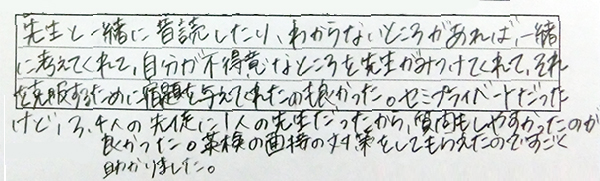 先生と一緒に音読したり、わからないところがあれば、一緒
に考えてくれて、自分が不得意なところを先生がみつけてくれて、それ
を克服するために宿題を与えてくれたのも良かった。セミプライベートだった
けど、3、4人の先徒に1人の先生だったから、質問もしやすかったのが
良かった。英検の面接の対策をしてもらえたのですごく
助かりました。